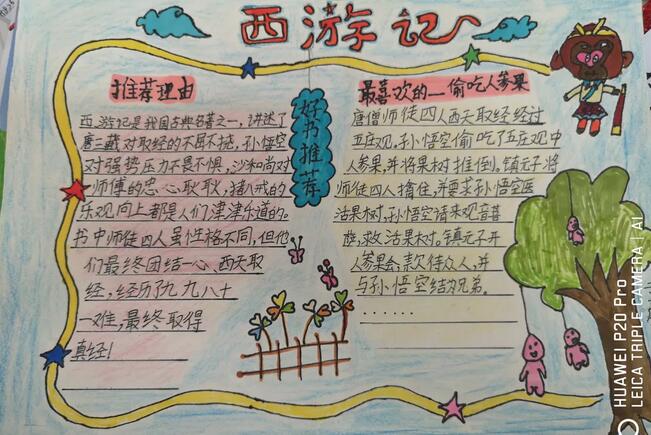 西游记
推荐理由
西游记是我国古典名著之一,讲述了
唐三藏对取经的不屈不挠,孙悟空
对强势压力不畏不惧,沙和尚对
师傅的忠心耿耿,猪八戒的
乐观向上都是人们津津乐道的。
书中师徒四人虽性格不同,但他
们最终团结一心、西天取
经,经历了九九八十
一难,最终取得
真经!
好书推荐
最喜欢的—偷吃人参果
唐僧师徒四人西天取经经过
五庄观,孙悟空偷吃了五庄观中
人参果,并将果树推倒。镇元子将
师徒四人擒住,并要求孙悟空医
活果树,孙悟空请来观音菩
萨,救活果树。镇元子开
人参果会,款待众人,并
与孙悟空结为兄弟。
......
HUAWEI P20 Pro
LEICA TRIPLE CAMERA | AI